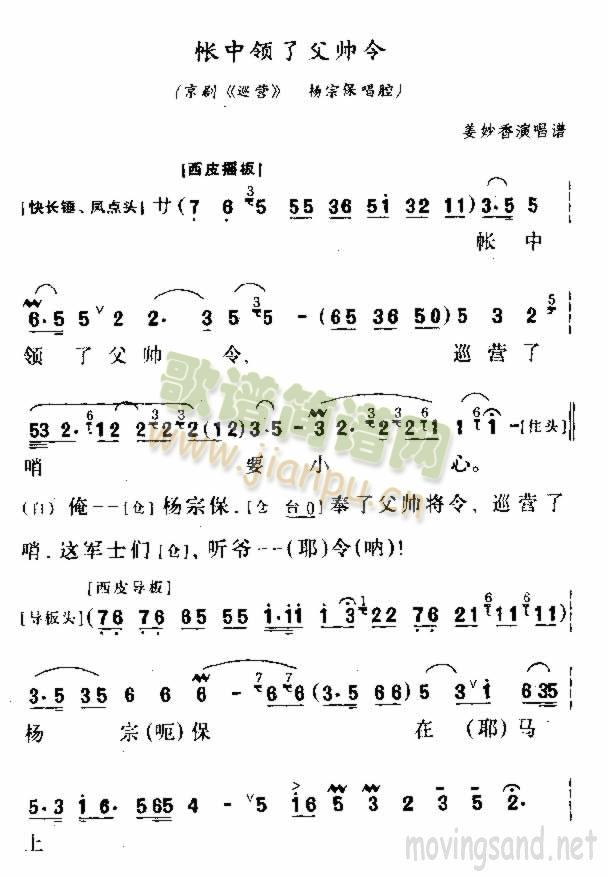 帐中领了父帅令
(京剧《巡营》 杨宗保唱腔)
姜妙香演唱谱
[西皮摇板]
[快长锤、凤点头] 廿 (7 6 3 5 55 36 51 32 11) 3·5 5
帐 中
6·5 5 ∨ 2 2· 3 5 3 5 - (65 36 50) 5 3 2 5
领 了 父 帅 令, 巡 营 了
53 2· 6 12 2 3 2 3 2 (12) 3·5 - 3 2· 3 2 3 2 6 1 6 1 - [住头]
哨 要 小 心。
(白) 俺--[仓]杨宗保.[仓 台0]奉了父帅将令, 巡营了
哨.这军士们[仓],听爷---(耶)令(呐)!
[西皮导板]
[导板头] (76 76 65 55 1·11 1 3 1 22 76 21 6 11 6 11)
3·5 35 6 6 6 - 7 6 7 6 (3·5 66) 5 3 ∨ 1 635
杨 宗(呃)保 在 (耶)马
5·3 16· 565 4 - ∨ 5 16 5 3 2 3 5 2·
上
歌谱简谱网
www.jianpu.cn
movingsand.net